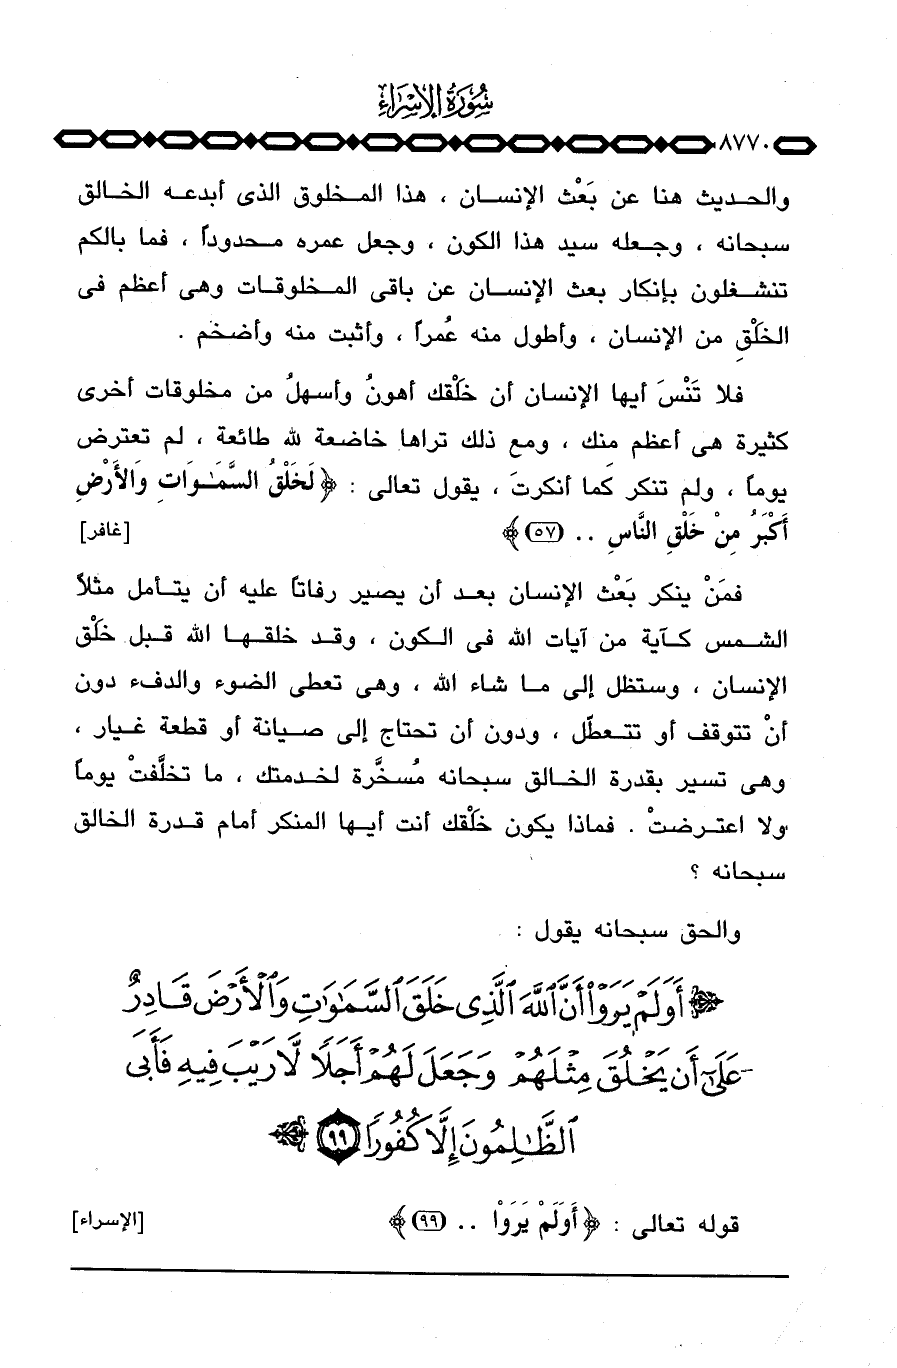 سُورَةُ الإِسْرَاءِ
٨٧٧٠
والحديث هنا عن بَعْث الإنسان ، هذا المخلوق الذى أبدعه الخالق
سبحانه ، وجعله سيد هذا الكون ، وجعل عمره محدوداً ، فما بالكم
تنشغلون بإنكار بعث الإنسان عن باقى المخلوقات وهى أعظم فى
الخَلْقِ من الإنسان ، وأطول منه عُمراً ، وأثبت منه وأضخم .
فلا تَنْسَ أيها الإنسان أن خَلْقك أهونُ وأسهلُ من مخلوقات أخرى
كثيرة هى أعظم منك ، ومع ذلك تراها خاضعة لله طائعة ، لم تعترض
يوماً ، ولم تنكر كما أنكرتَ ، يقول تعالى : ﴿ لَخَلْقُ السَّمَـٰوَاتِ وَالأَرْضِ
أَكْبَرُ مِنْ خَلْقِ النَّاسِ .. (٥٧) ﴾ [غافر]
فمَنْ ينكر بَعْث الإنسان بعد أن يصير رفاتاً عليه أن يتأمل مثلاً
الشمس كآية من آيات الله فى الكون ، وقد خلقها الله قبل خَلْق
الإنسان ، وستظل إلى ما شاء الله ، وهى تعطى الضوء والدفء دون
أنْ تتوقف أو تتعطّل ، ودون أن تحتاج إلى صيانة أو قطعة غيار ،
وهى تسير بقدرة الخالق سبحانه مُسخَّرة لخدمتك ، ما تخلَّفتْ يوماً
ولا اعترضتْ . فماذا يكون خَلْقك أنت أيها المنكر أمام قدرة الخالق
سبحانه ؟
والحق سبحانه يقول :
﴿ أَوَلَمْ يَرَوْا۟ أَنَّ ٱللَّهَ ٱلَّذِى خَلَقَ ٱلسَّمَـٰوَٰتِ وَٱلْأَرْضَ قَادِرٌ
عَلَىٰٓ أَن يَخْلُقَ مِثْلَهُمْ وَجَعَلَ لَهُمْ أَجَلًا لَّا رَيْبَ فِيهِ فَأَبَى
ٱلظَّـٰلِمُونَ إِلَّا كُفُورًا (٩٩) ﴾
قوله تعالى : ﴿ أَوَلَمْ يَرَوْا .. (٩٩) ﴾ [الإسراء]